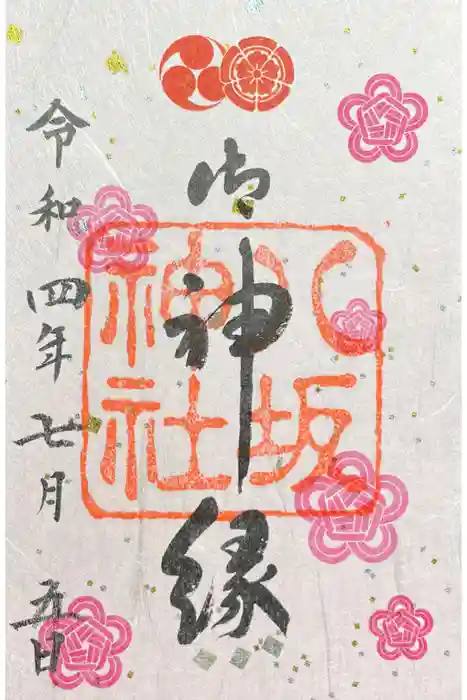 御神縁
八坂神社
令和四年七月五日